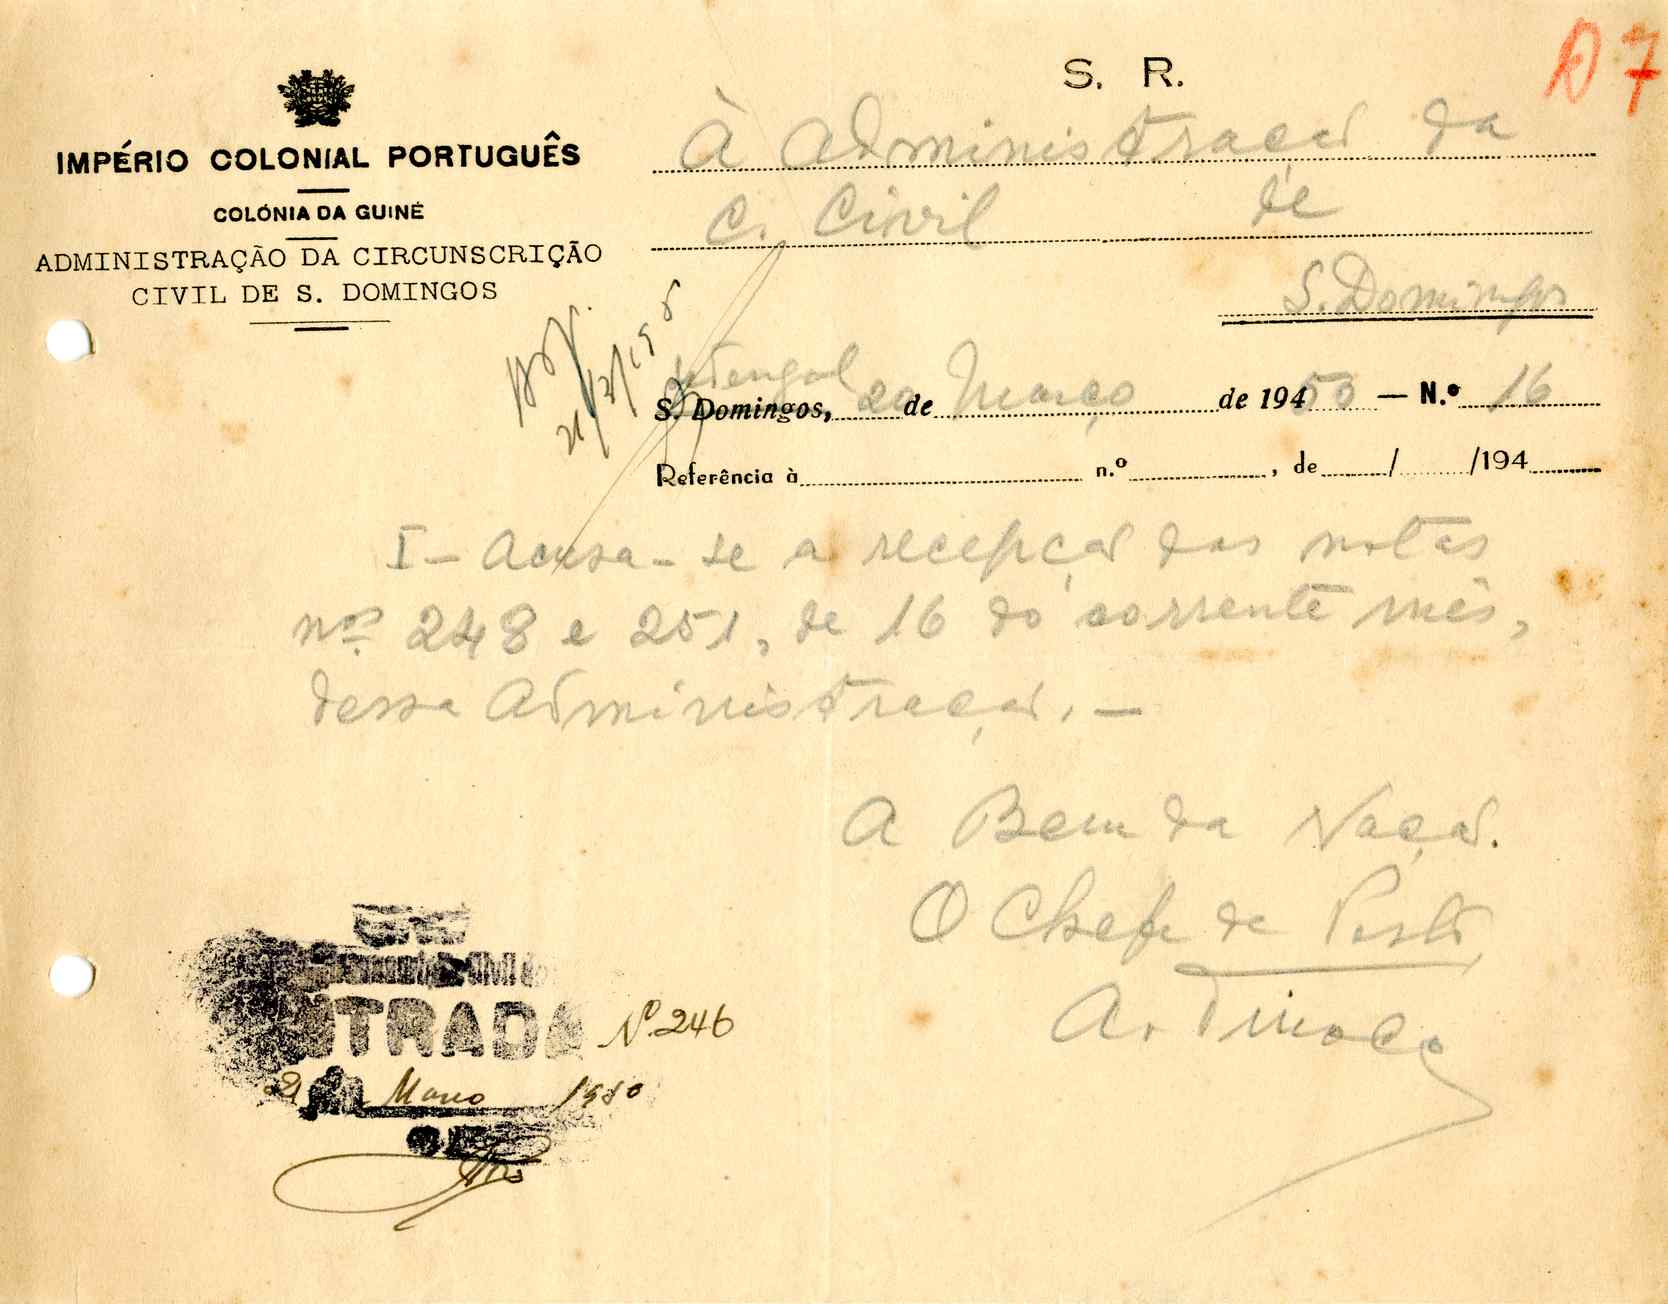 D 7
S. R.
IMPÉRIO COLONIAL PORTUGUÊS
COLÓNIA DA GUINÉ
ADMINISTRAÇÃO DA CIRCUNSCRIÇÃO
CIVIL DE S. DOMINGOS
À Administração da
C. Civil de
S. Domingos
S. Domingos, 20 de Março de 1950 — N.º 16
Referência à n.º , de / /194
I - Acusa-se a recepção das notas
nºs 248 e 251, de 16 do corrente mês,
dessa Administração. —
A Bem da Nação.
O Chefe de Posto,
A.
ENTRADA Nº 246
21 Março 1950